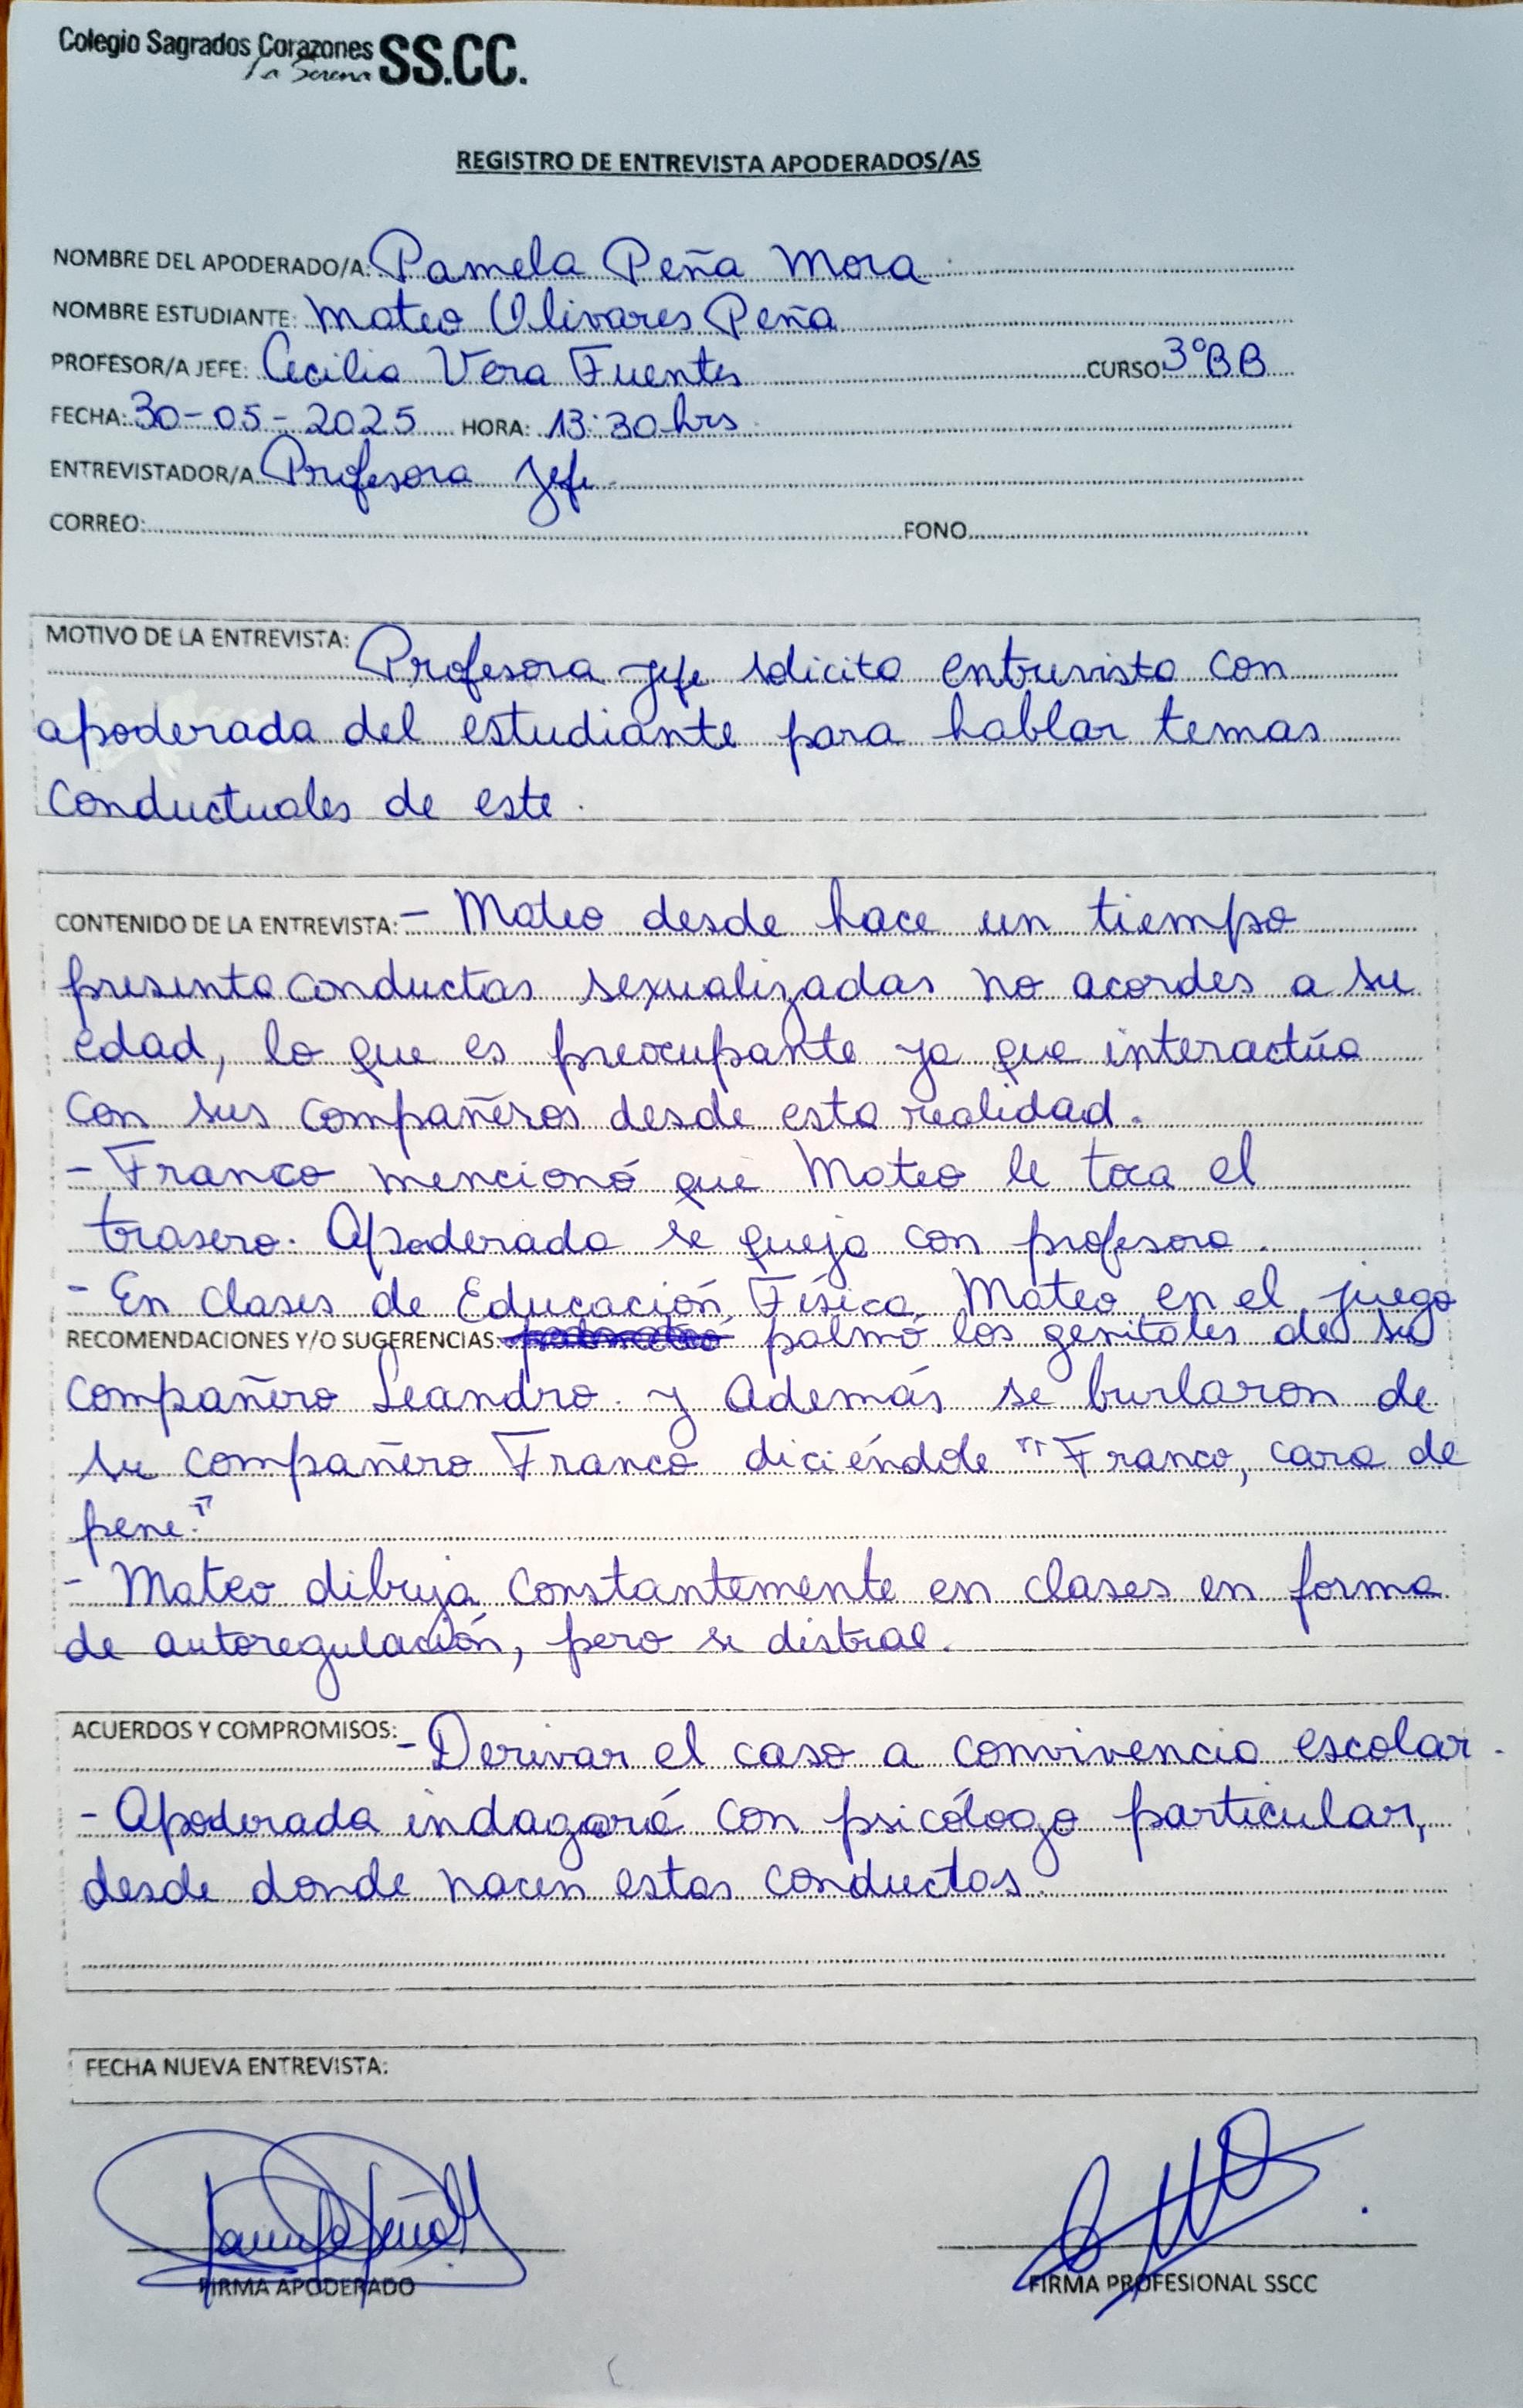 Colegio Sagrados Corazones SS.CC.
La Serena
REGISTRO DE ENTREVISTA APODERADOS/AS
NOMBRE DEL APODERADO/A: Pamela Peña Mora
NOMBRE ESTUDIANTE: Mateo Olivares Peña
PROFESOR/A JEFE: Cecilia Vera Fuentes CURSO 3°BB
FECHA: 30-05-2025 HORA: 13:30 hrs
ENTREVISTADOR/A Profesora Jefe
CORREO: FONO
MOTIVO DE LA ENTREVISTA: Profesora jefe solicita entrevista con
apoderada del estudiante para hablar temas
conductuales de este.
CONTENIDO DE LA ENTREVISTA: - Mateo desde hace un tiempo
presenta conductas sexualizadas no acordes a su
edad, lo que es preocupante ya que interactúa
con sus compañeros desde esta realidad.
- Franco mencionó que Mateo le toca el
trasero. Apoderada se queja con profesora.
- En clases de Educación Física, Mateo en el juego
RECOMENDACIONES Y/O SUGERENCIAS: palmó los genitales de su
compañero Leandro. y Además se burlaron de
su compañero Franco diciéndole "Franco, cara de
pene."
- Mateo dibuja constantemente en clases en forma
de autoregulación, pero se distrae.
ACUERDOS Y COMPROMISOS: - Derivar el caso a convivencia escolar.
- Apoderada indagará con psicólogo particular,
desde donde nacen estas conductas.
FECHA NUEVA ENTREVISTA:
FIRMA APODERADO FIRMA PROFESIONAL SSCC